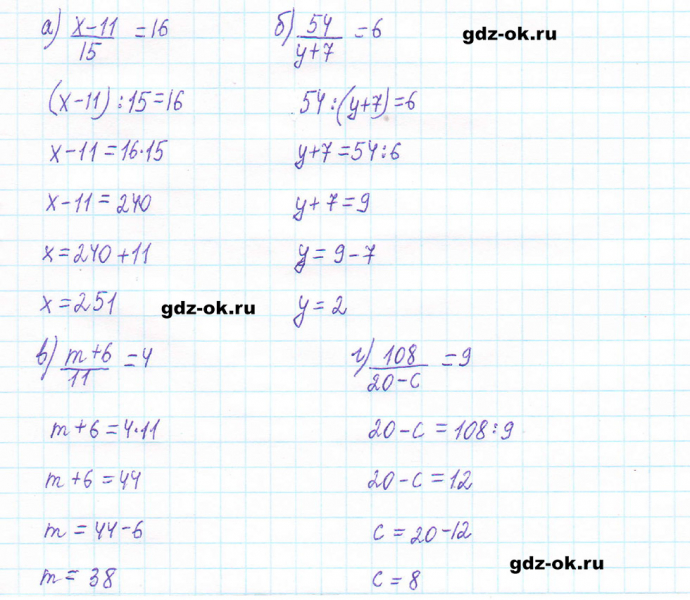 а) x-11/15 = 16
(x-11):15=16
x-11=16·15
x-11=240
x=240+11
x=251
б) 54/y+7 = 6
gdz-ok.ru
54:(y+7)=6
y+7=54:6
y+7=9
y=9-7
y=2
gdz-ok.ru
в) m+6/11 = 4
m+6=4·11
m+6=44
m=44-6
m=38
г) 108/20-c = 9
20-c=108:9
20-c=12
c=20-12
c=8
gdz-ok.ru